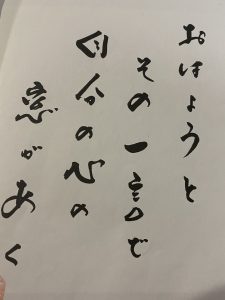 おはようと
その一言で
自分の心の
窓があく